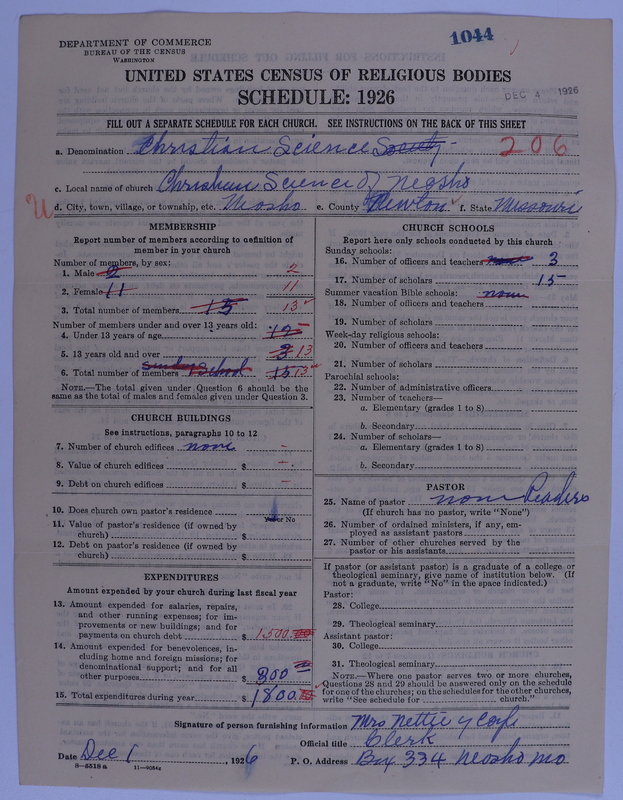 1044
DEPARTMENT OF COMMERCE
BUREAU OF THE CENSUS
WASHINGTON
UNITED STATES CENSUS OF RELIGIOUS BODIES
SCHEDULE: 1926
DEC 4 1926
FILL OUT A SEPARATE SCHEDULE FOR EACH CHURCH. SEE INSTRUCTIONS ON THE BACK OF THIS SHEET
a. Denomination Christian Science Society 206
c. Local name of church Christian Science of Neosho
d. City, town, village, or township, etc. Neosho e. County Newton f. State Missouri
MEMBERSHIP
Report number of members according to definition of
member in your church
Number of members, by sex:
1. Male 2 2
2. Female 11 11
3. Total number of members 15 13
Number of members under and over 13 years old:
4. Under 13 years of age
5. 13 years old and over 3 13
6. Total number of members Sunday School 15 13
NOTE.—The total given under Question 6 should be the
same as the total of males and females given under Question 3.
CHURCH BUILDINGS
See instructions, paragraphs 10 to 12
7. Number of church edifices none -
8. Value of church edifices $ -
9. Debt on church edifices $ -
10. Does church own pastor's residence
Yes or No
11. Value of pastor's residence (if owned by
church) $
12. Debt on pastor's residence (if owned by
church) $
EXPENDITURES
Amount expended by your church during last fiscal year
13. Amount expended for salaries, repairs,
and other running expenses; for im-
provements or new buildings; and for
payments on church debt $ 1500.00
14. Amount expended for benevolences, in-
cluding home and foreign missions; for
denominational support; and for all
other purposes $ 300
15. Total expenditures during year $ 1800
CHURCH SCHOOLS
Report here only schools conducted by this church
Sunday schools:
16. Number of officers and teachers none 3
17. Number of scholars 15
Summer vacation Bible schools: none
18. Number of officers and teachers
19. Number of scholars
Week-day religious schools:
20. Number of officers and teachers
21. Number of scholars
Parochial schools:
22. Number of administrative officers
23. Number of teachers—
a. Elementary (grades 1 to 8)
b. Secondary
24. Number of scholars—
a. Elementary (grades 1 to 8)
b. Secondary
PASTOR
25. Name of pastor none Readers
(If church has no pastor, write "None")
26. Number of ordained ministers, if any, em-
ployed as assistant pastors
27. Number of other churches served by the
pastor or his assistants
If pastor (or assistant pastor) is a graduate of a college or
theological seminary, give name of institution below. (If
not a graduate, write "No" in the space indicated.)
Pastor:
28. College
29. Theological seminary
Assistant pastor:
30. College
31. Theological seminary
NOTE.—Where one pastor serves two or more churches,
Questions 28 and 29 should be answered only on the schedule
for one of the churches; on the schedules for the other churches,
write "See schedule for church."
Signature of person furnishing information Mrs Nettie Y
Official title Clerk
Date Dec 1, 1926 P. O. Address Box 334 Neosho Mo
8-5518a 11-9056c